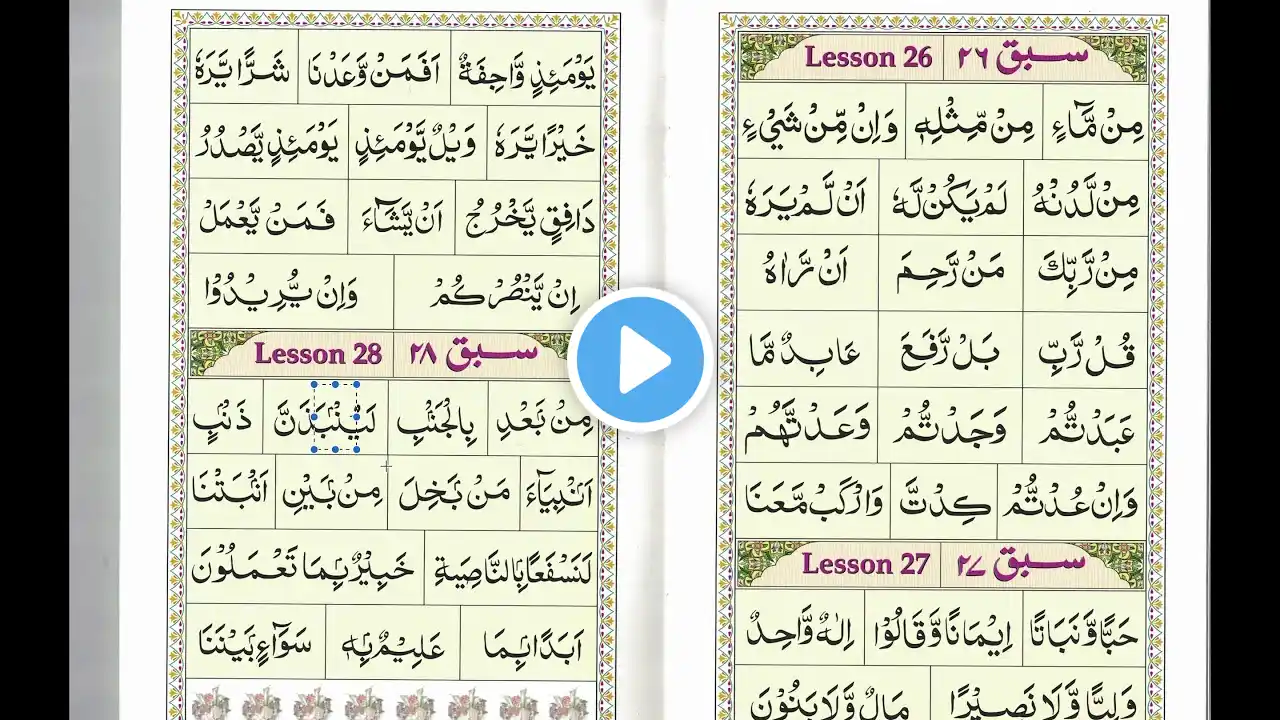 سبق ٢٦ Lesson 26
مِنْ مَّآءٍ مِنْ مِّثْلِهٖ وَاِنْ مِّنْ شَیْءٍ
مِنْ لَّدُنْهُ لَمْ یَكُنْ لَّهٗ اَنْ لَّمْ یَرَهٗ
مِنْ رَّبِّكَ مَنْ رَّحِمَ اَنْ رَّاٰهُ
قُلْ رَّبِّ بَلْ رَّفَعَ عَابِدٌ مَّا
عَبَدْتُّمْ وَجَدْتُّمْ وَعَدْتَّهُمْ
وَاِنْ عُدْتُّمْ كِدْتَّ وَارْكَبْ مَّعَنَا
سبق ٢٧ Lesson 27
حَبًّا وَّنَبَاتًا اِیْمَانًا وَّقَالُوْا اِلٰهٌ وَّاحِدٌ
وَلِیًّا وَّلَا نَصِیْرًا مَالٌ وَّلَا بَنُوْنَ
یَوْمَئِذٍ وَّاجِفَةٌ اَفَمَنْ وَّعَدْنَا شَرًّا یَّرَهٗ
خَیْرًا یَّرَهٗ وَیْلٌ یَّوْمَئِذٍ یَوْمَئِذٍ یَّصْدُرُ
دَافِقٍ یَّخْرُجُ اَنْ یَّشَآءَ فَمَنْ یَّعْمَلْ
اِنْ یَّنْصُرْكُمْ وَاِنْ یُّرِیْدُوْا
سبق ٢٨ Lesson 28
مِنْ بَعْدِ بِالْجَنْبِ لَیُنْبَذَنَّ ذَنْبٍ
اَنْبِیَآءَ مَنْ بَخِلَ مِنْ بَیْنِ اَنْبَتْنَا
لَنَسْفَعًا بِالنَّاصِیَةِ خَبِیْرٌ بِمَا تَعْمَلُوْنَ
اَبَدًا بِمَا عَلِیْمٌ بِهٖ سَوَآءٍ بَیْنَنَا